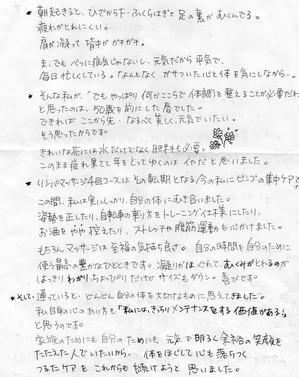 ★ 朝起きると、ひざから下・ふくらはぎと足の裏がむくんでる。
疲れがとれにくい。
肩が凝って 背中がガチガチ。
ま、でもべつに病気じゃないし、元気だから平気で、
毎日忙しくしている。「なんとなく ガサついた心と体を気にしながら…
★ そんな私が、「でもやっぱり 何かここらで体調を整えることが必要だわ
と思ったのは、50歳を前にした春でした。
できれば ここから先・なるべく美しく、元気でいたい。
そう思ったからです。
きれいな花には 水だけでなく 肥料も必要。
このまま疲れ果てて年をとってゆくのはイヤだと思いました。
★ リンパマッサージ4回コースは その転期となる今の私にピンポの集中ケアで
この間、私は実にしっかり、自分の体にむき合いました。
姿勢を正したり、自転車の乗り方をトレーニング仕様にしたり、
お酒をやや控えたり、ストレッチや腹筋運動も心がけました。
もちろん マッサージは至福の気持ち良さ。自分の時間を自分のために
使う最高の豊かなひとときです。海通りがほぐれて、むくみがとれるのが
はっきりわかり、ちょっぴりだけど サイズもダウン。喜びです。
★ そして 通っていると どんどん自分の体を大切なものに思えてきました。
私自身の心のありも「私には、きっちりメンテナンスをする価値がある」
と思うのです。
家族のためにも 自分のためにも 元気で明るく余裕の笑顔を
たたえた人でいたいから、体をほぐして心も落ちつく
つるたケアを これからも続けようと思いました。